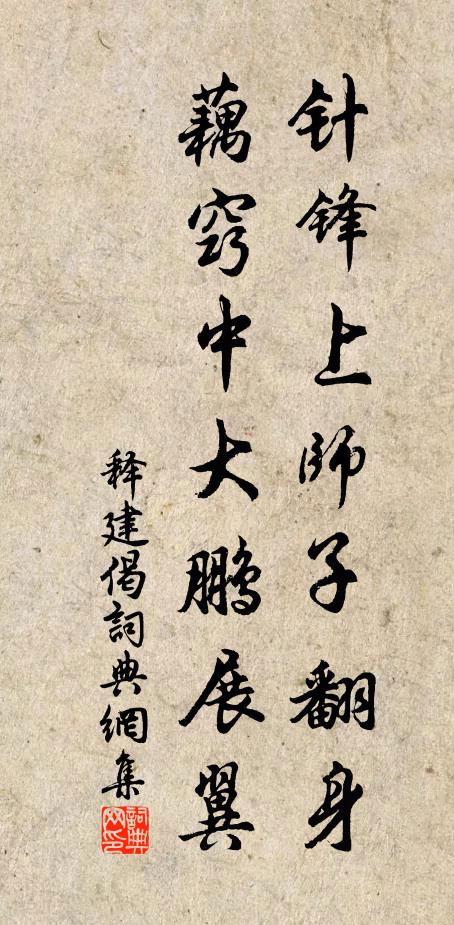 针锋上師子翻身
藕窍中大鹏展翼
释建偈詞典網集
詞典網印